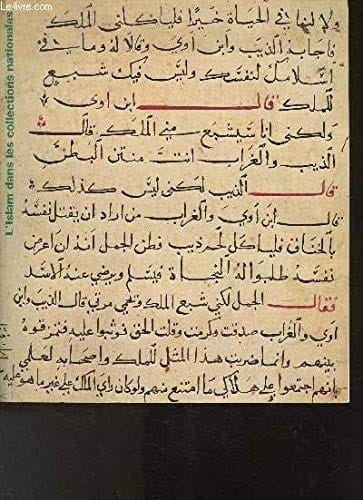 Le-livre.com
L'Islam dans les collections nationales
ولا لنا في الحياة خيرا فليأكلني الملك
فاجابه الذيب وابن اوي وقالا له وما في
اكلك لنفسك وليس فيك شبع
للملك قال ابن اوي
ولكني انا سيشبع مني الملك قال
الذيب والغراب انت منتن البطن
قال الذيب لكني ليس كذلك
قال ابن آوي والغراب من اراد ان يقتل نفسه
بالخناق فلياكل لحم ذيب فظن الجمل انه ان اعرض
نفسه طلبوا له النجاة فيسلم ويرضي عنه الاسد
فقال الجمل لكني شبع الملك ولحمي مري قال الذيب وابن
اوي والغراب صدقت وكرمت وقلت الحق فوثبوا عليه فمزقوه
بينهم وانما ضربت هذا المثل للملك واصحابه لعلمي
بانهم اجتمعوا على هلاكي ما امتنع منهم ولو كان راي الملك على غير ما هو عليه